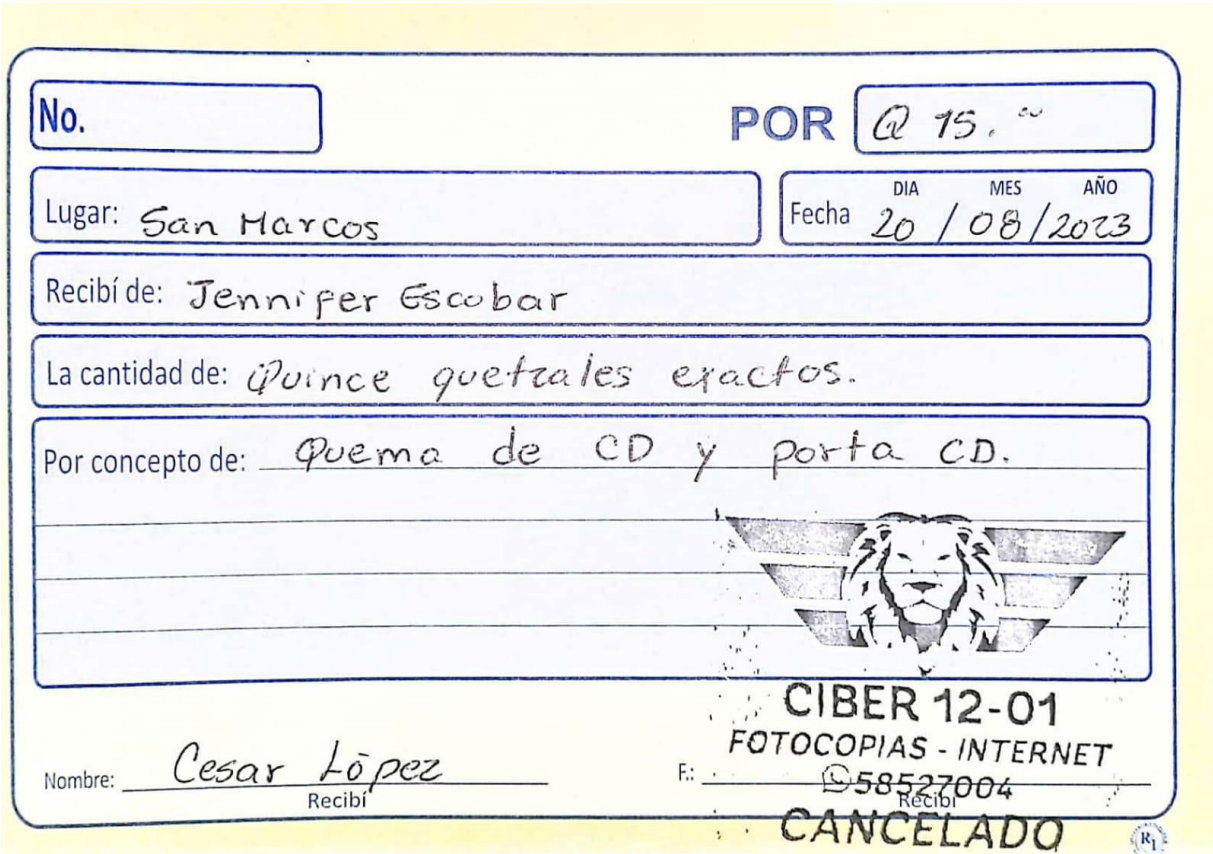 No.
POR Q 15.00
Lugar: San Marcos
DIA MES AÑO
Fecha 20 / 08 / 2023
Recibí de: Jennifer Escobar
La cantidad de: Quince quetzales exactos.
Por concepto de: Quema de CD y porta CD.
CIBER 12-01
FOTOCOPIAS - INTERNET
Nombre: Cesar López F.: 58527004
Recibí Recibí
CANCELADO
R1